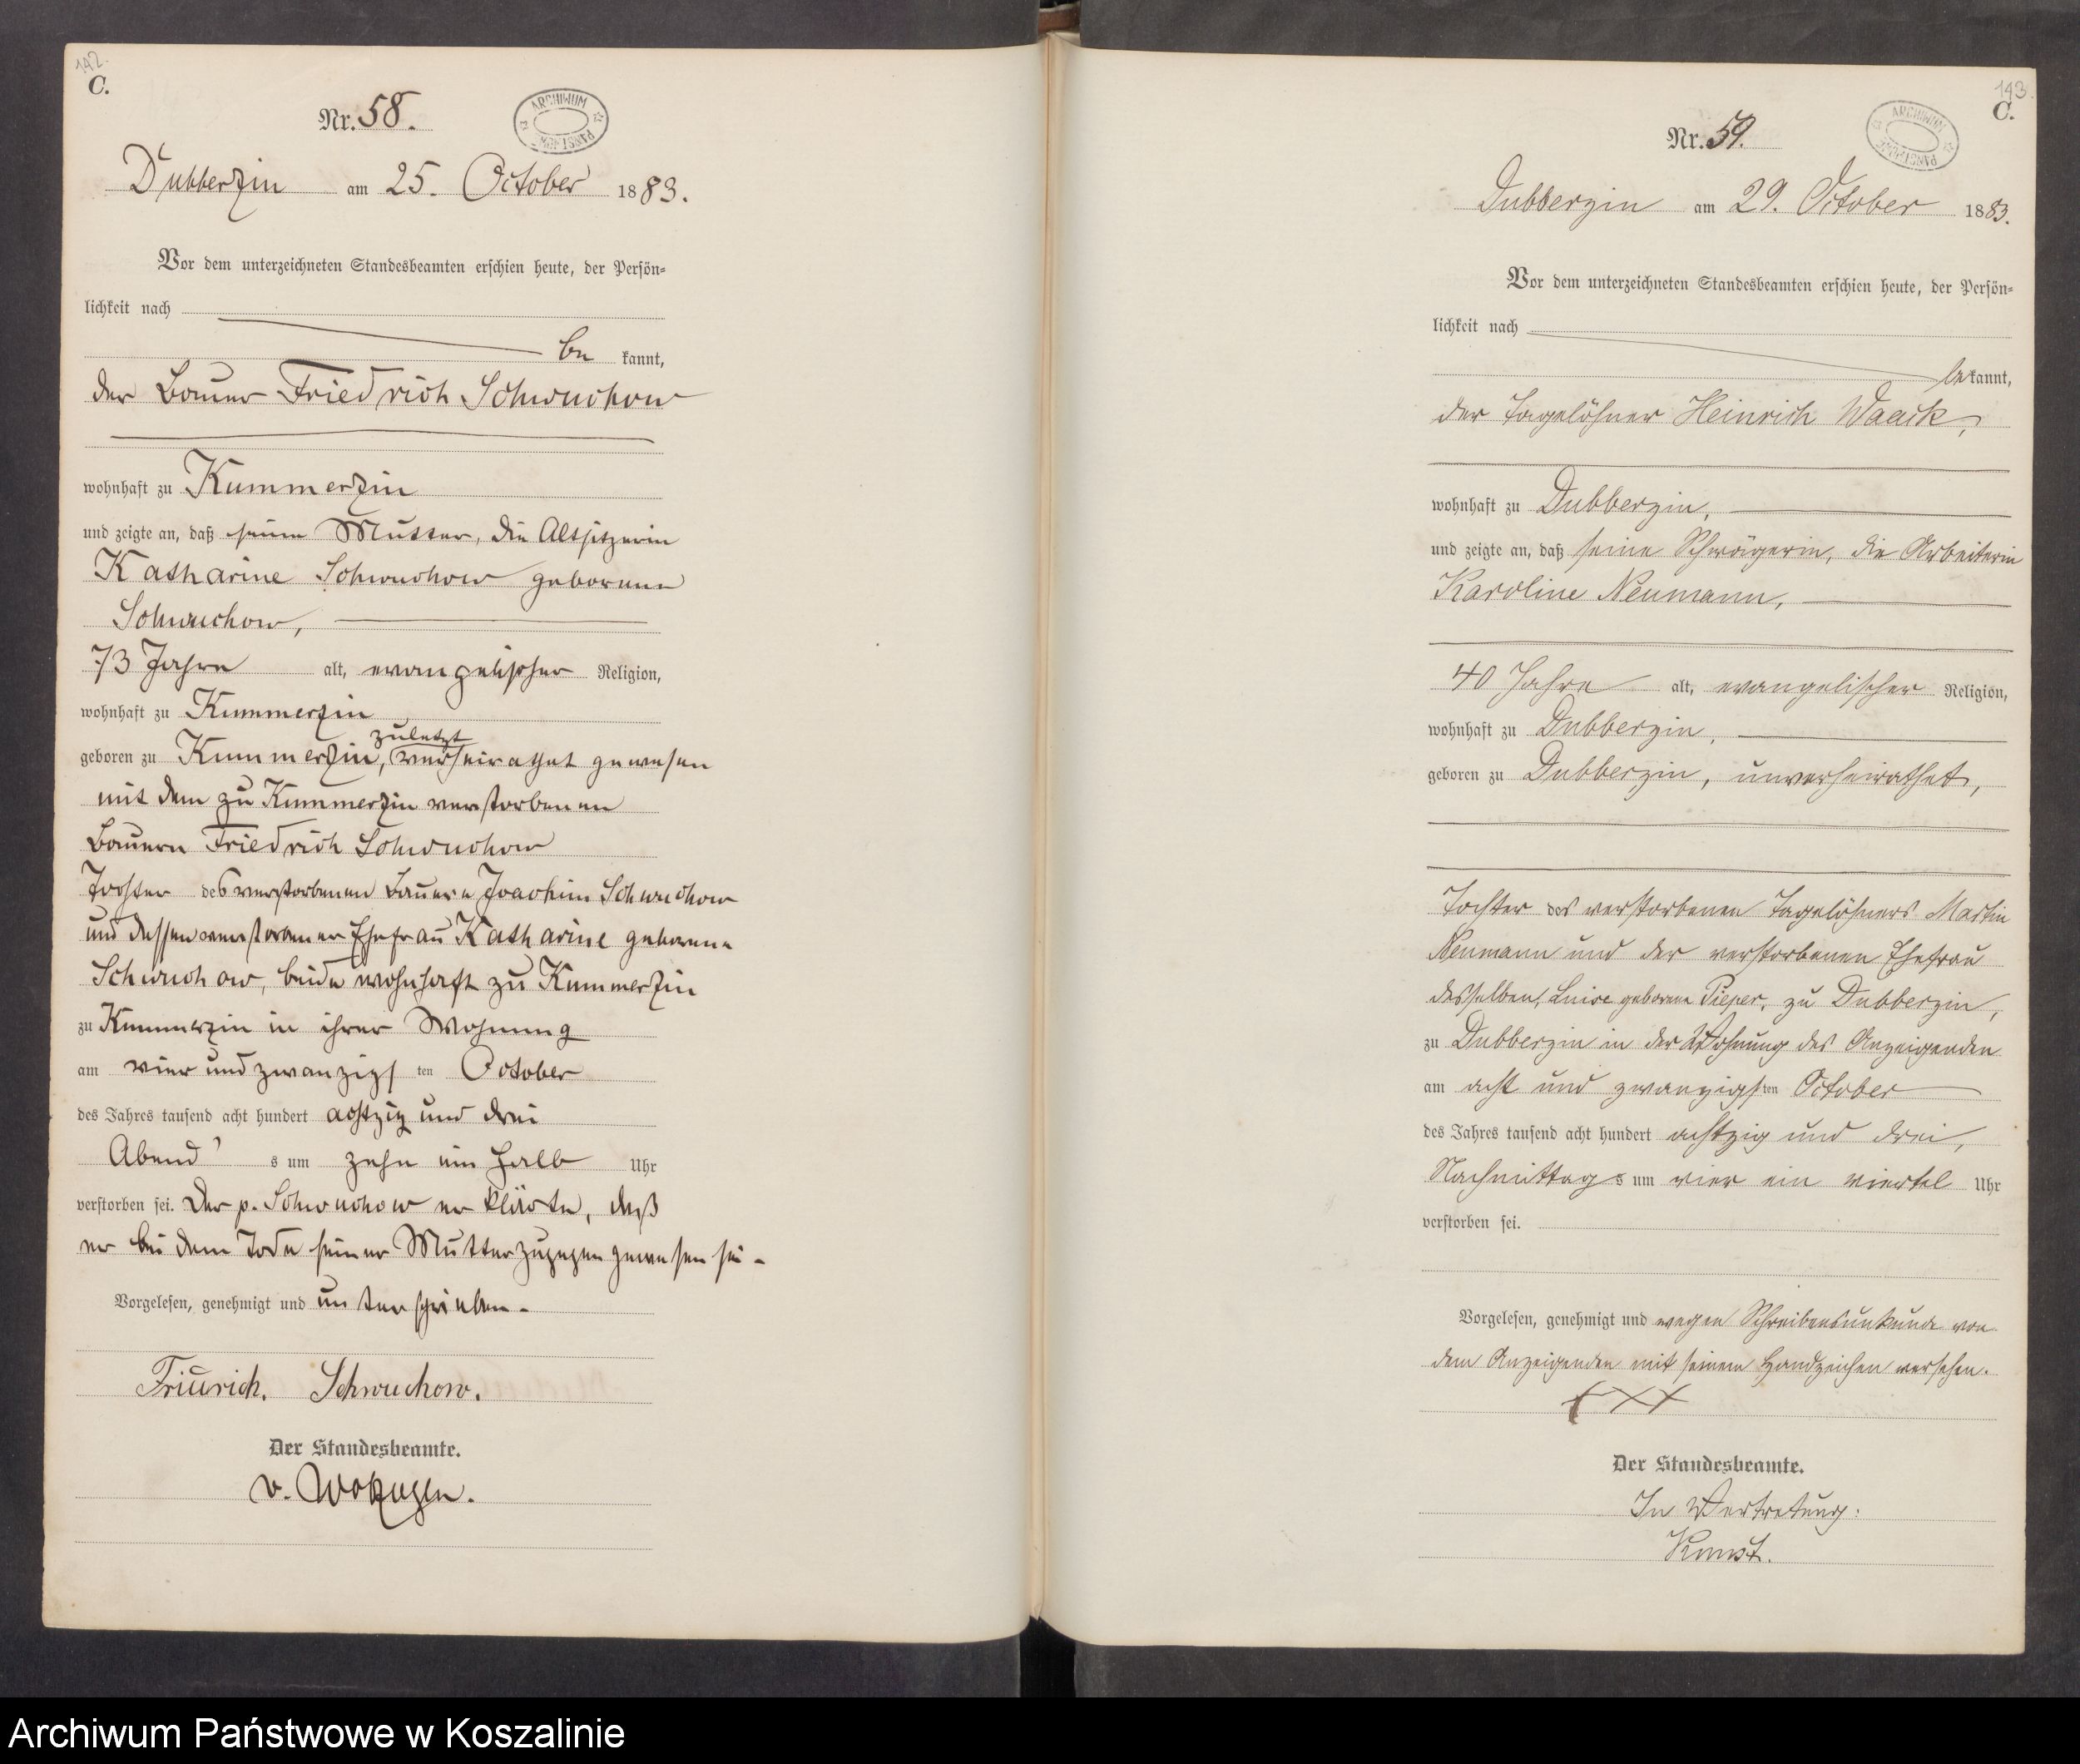 142.
C.
Nr. 58.
ARCHIWUM PAŃSTWOWE
Dubberzin am 25. October 1883.
Vor dem unterzeichneten Standesbeamten erschien heute, der Persön-
lichkeit nach
be kannt,
der Bauer Friedrich Schwuchow
wohnhaft zu Kummerzin
und zeigte an, daß seine Mutter, die Altsitzerin
Katharine Schwuchow geborene
Schwuchow,
73 Jahre alt, evangelischer Religion,
wohnhaft zu Kummerzin
zuletzt
geboren zu Kummerzin, verheirathet gewesen
mit dem zu Kummerzin verstorbenen
Bauern Friedrich Schwuchow
Tochter des verstorbenen Bauern Joachim Schwuchow
und dessen verstorbener Ehefrau Katharine geborene
Schwuchow, beide wohnhaft zu Kummerzin
zu Kummerzin in ihrer Wohnung
am vier und zwanzigs ten October
des Jahres tausend acht hundert achtzig und drei
Abend s um zehn ein halb Uhr
verstorben sei. Der p. Schwuchow erklärte, daß
er bei dem Tode seiner Mutter zugegen gewesen sei.
Vorgelesen, genehmigt und unterschrieben.
Friedrich. Schwuchow.
Der Standesbeamte.
v. Woedtke.
143.
C.
Nr. 59.
ARCHIWUM PAŃSTWOWE
Dubberzin am 29. October 1883.
Vor dem unterzeichneten Standesbeamten erschien heute, der Persön-
lichkeit nach
bekannt,
der Tagelöhner Heinrich Waack,
wohnhaft zu Dubberzin,
und zeigte an, daß seine Schwägerin, die Arbeiterin
Karoline Neumann,
40 Jahre alt, evangelischer Religion,
wohnhaft zu Dubberzin,
geboren zu Dubberzin, unverheirathet,
Tochter des verstorbenen Tagelöhners Martin
Neumann und der verstorbenen Ehefrau
desselben, Luise geborene Pieper, zu Dubberzin,
zu Dubberzin in der Wohnung des Anzeigenden
am acht und zwanzigsten October
des Jahres tausend acht hundert achtzig und drei,
Nachmittag s um vier ein viertel Uhr
verstorben sei.
Vorgelesen, genehmigt und wegen Schreibensunkunde von
dem Anzeigenden mit seinem Handzeichen versehen.
+++
Der Standesbeamte.
In Vertretung:
Kunst.
Archiwum Państwowe w Koszalinie